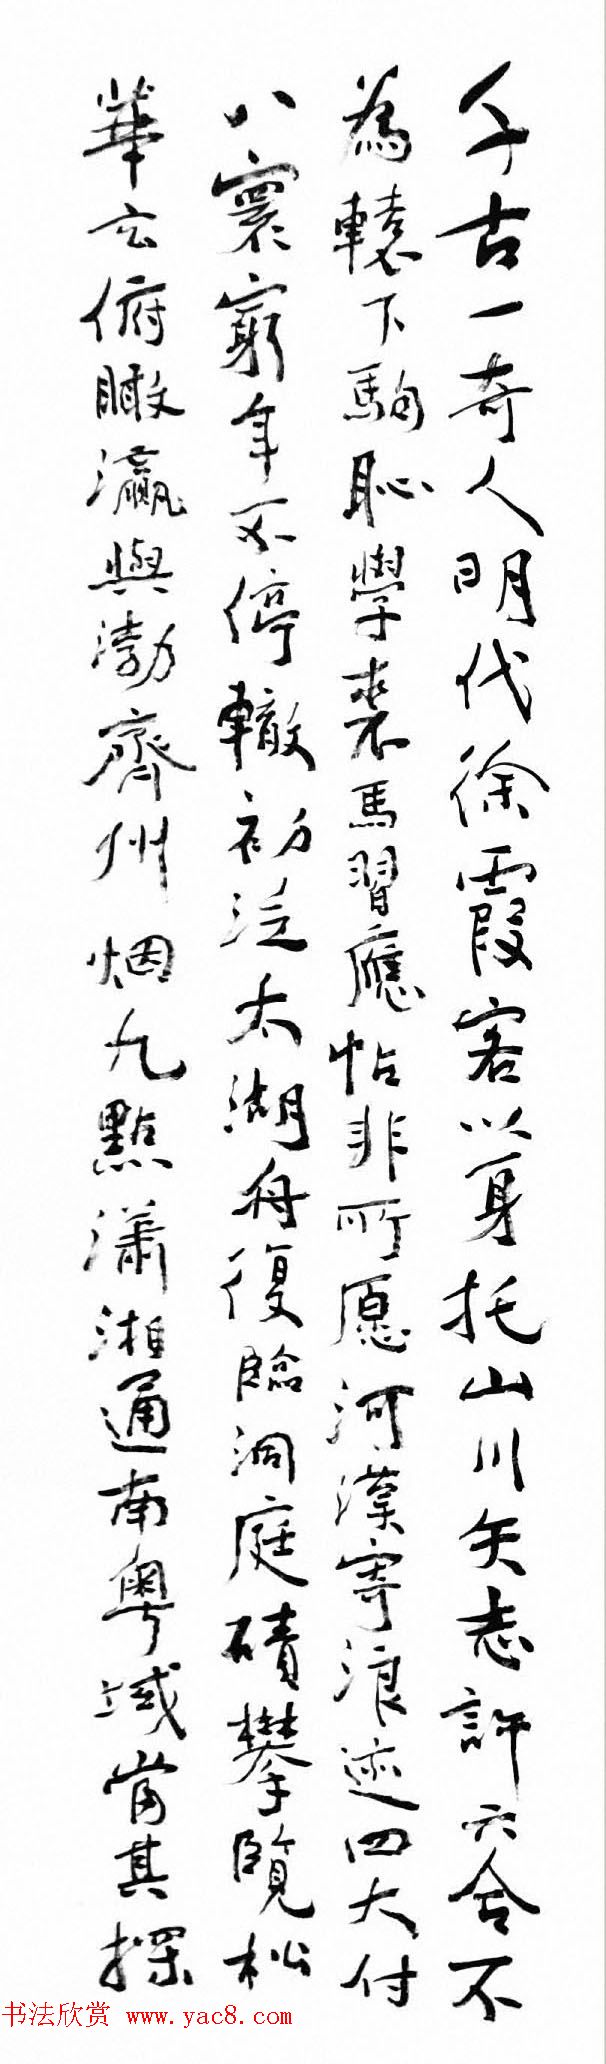 千古一奇人明代徐霞客以身托山川矢志許六合不
為轅下駒恥學裘馬習應帖非所愿河漢寄浪迹四大付
八寰窮年不停轍初泛太湖舟復臨洞庭磧攀覽松
華云俯瞰瀛與渤齊州烟九點瀟湘通南粵域當其探
书法欣赏 www.yac8.com